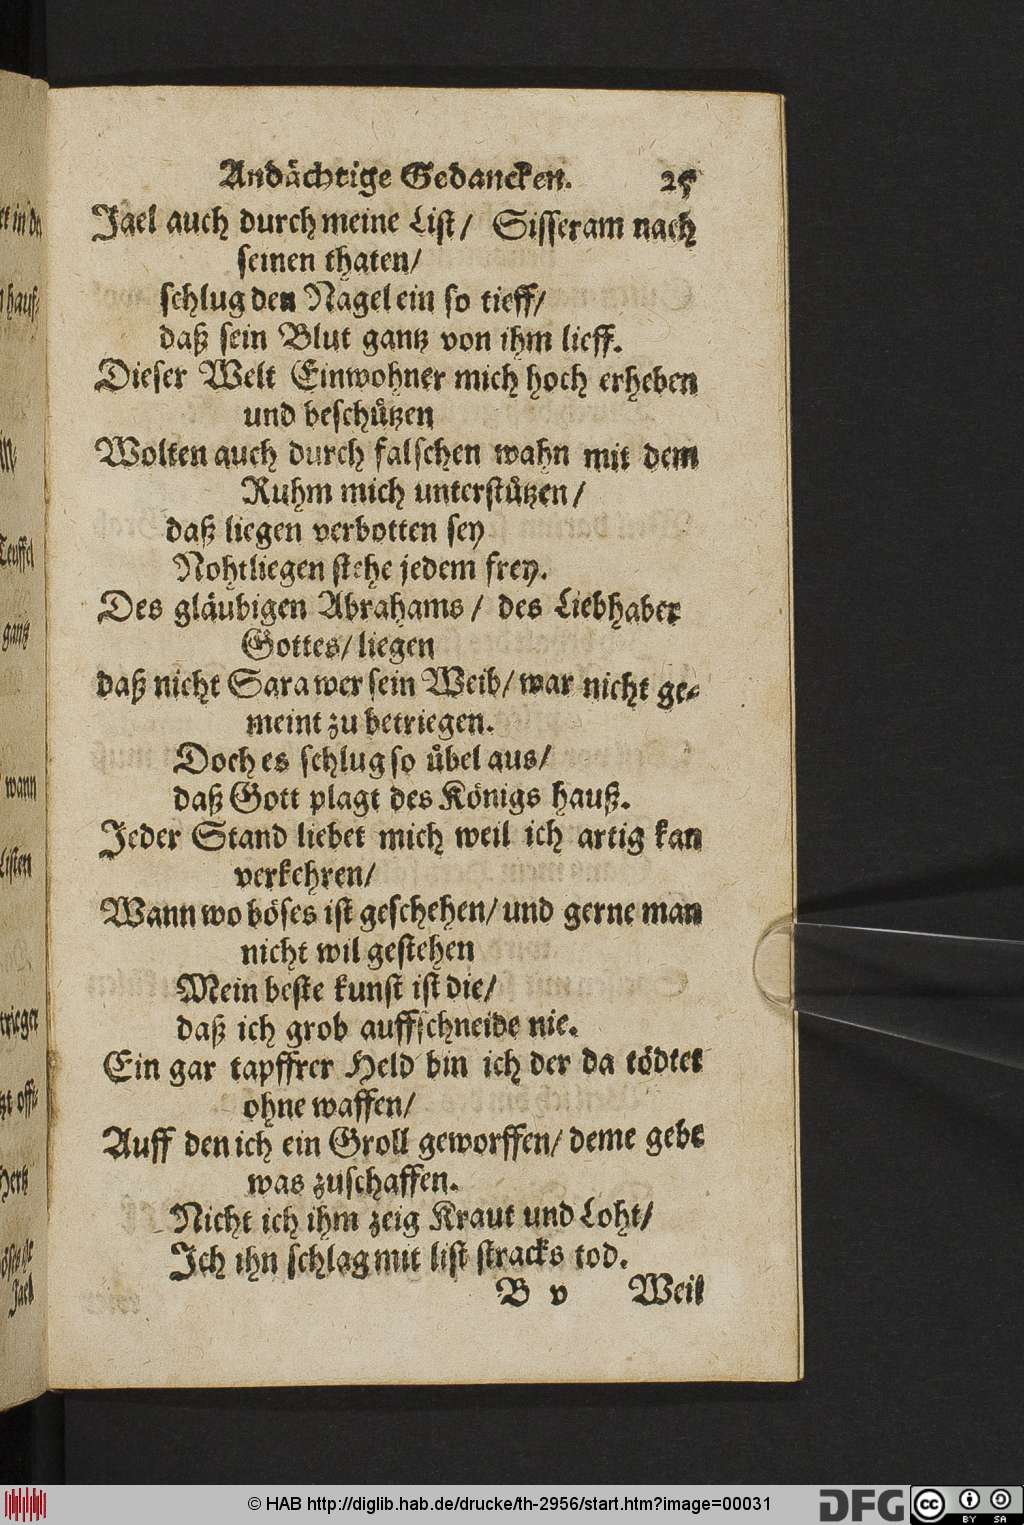 Andächtige Gedancken. 25
Jael auch durch meine List/ Sisseram nach
seinen thaten/
schlug den Nagel ein so tieff/
daß sein Blut gantz von ihm lieff.
Dieser Welt Einwohner mich hoch erheben
und beschützen
Wolten auch durch falschen wahn mit dem
Ruhm mich unterstützen/
daß liegen verbotten sey
Nohtliegen stehe jedem frey.
Des gläubigen Abrahams/ des Liebhaber
Gottes/ liegen
daß nicht Sara wer sein Weib/ war nicht ge-
meint zu betriegen.
Doch es schlug so übel aus/
daß Gott plagt des Königs hauß.
Jeder Stand liebet mich weil ich artig kan
verkehren/
Wann wo böses ist geschehen/ und gerne man
nicht wil gestehen
Mein beste kunst ist die/
daß ich grob auffschneide nie.
Ein gar tapffrer Held bin ich der da tödtet
ohne waffen/
Auff den ich ein Groll geworffen/ deme gebe
was zuschaffen.
Nicht ich ihm zeig Kraut und Loht/
Ich ihn schlag mit list stracks tod.
B v Weil
© HAB http://diglib.hab.de/drucke/th-2956/start.htm?image=00031
DFG
cc BY SA